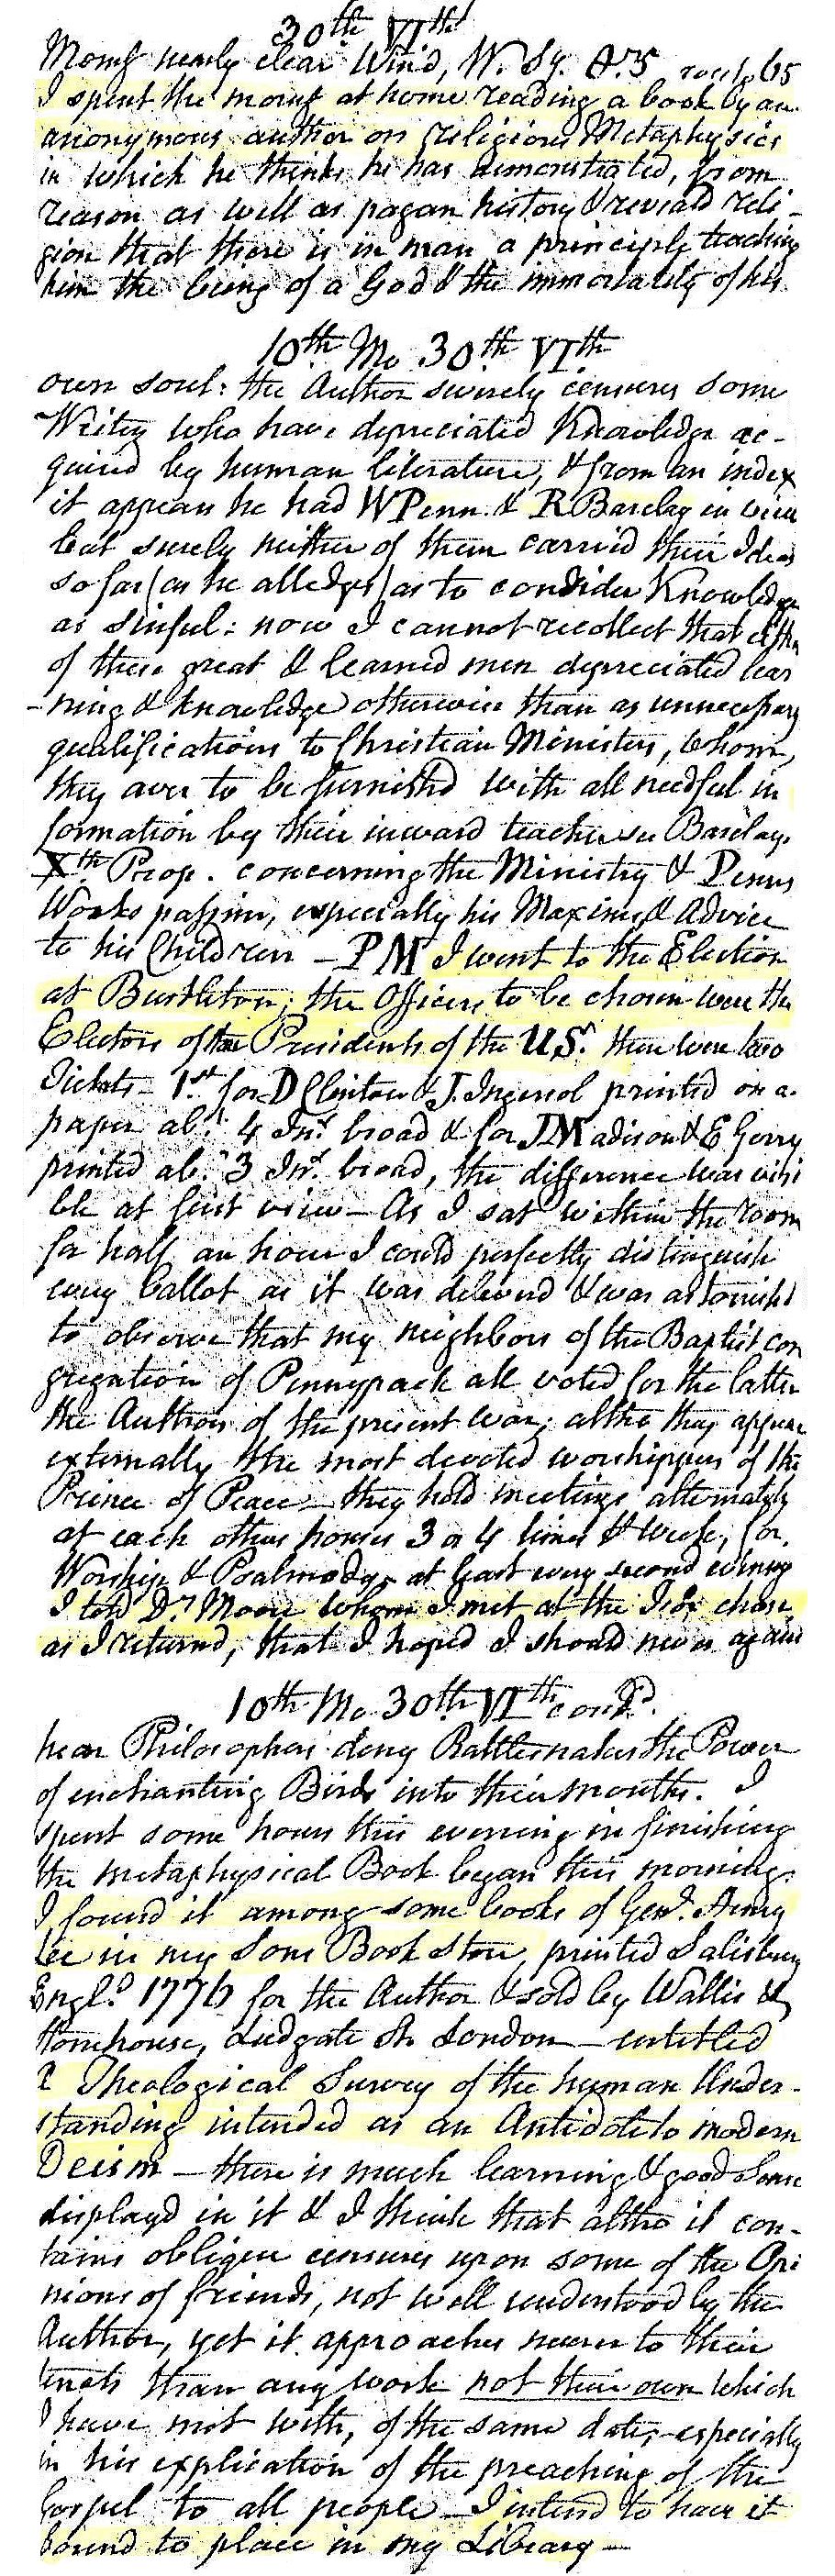 30th VIth
Morng nearly clear Wind, W. Sy. &.5 65
I spent the morng at home reading a book by an
anonymous author on religious Metaphysics
in which he thinks he has demonstrated, from
reason as well as pagan history & reveald reli-
gion that there is in man a principle teaching
him the being of a God & the immortality of his
10th Mo 30th VIth
own soul: the Author severely censures some
Writers who have depreciated Knowledge ac-
quired by human literature, & from an index
it appears he had W Penn & R Barclay in view
but surely neither of them carried their Ideas
so far (as he alledges) as to consider Knowledge
as sinful: now I cannot recollect that either
of these great & learned men depreciated lear
-ning & knowledge otherwise than as unnecessary
qualifications to Christian Ministers, whom,
they aver to be furnished with all needful in
formation by their inward teacher see Barclay.
Xth Prop. concerning the Ministry & Penns
Works passim, especially his Maxims & Advice
to his Children — PM I went to the Election
at Bustleton; the Officers to be chosen were the
Electors of the Presidents of the US. there were two
Tickets - 1.st for D Clinton & J. Ingersol printed on a.
paper abt. 4 Ins. broad & for J Madison & E Gerry
printed abt. 3 Ins. broad, the difference was visi
ble at first view — As I sat within the room
for half an hour I could perfectly distinguish
every ballot as it was deliverd & was astonishd
to observe that my neighbors of the Baptist con
gregation of Pennypack all voted for the latter
the Authors of the present war; altho they appear
externally the most devoted worshippers of the
Prince of Peace — they hold meetings alternately
at each others houses 3 or 4 times & Week, for
Worship & Psalmody, at least every second evening
I told Dr. Moore whom I met at the chase
as I returned, that I hoped I should never again
10th Mo 30th VIth contd.
hear Philosophers deny Rattlesnakes the Power
of enchanting Birds into their mouths. I
spent some hours this evening in finishing
the metaphysical Book began this morning.
I found it among some books of Genl. Henry
Lee in my Sons Book Store, printed Salisbury
Engld. 1776 for the Author & sold by Wallis &
Stonehouse, Ludgate St. London — entitled
A Theological Survey of the human Under-
standing intended as an Antidote to modern
Deism — there is much learning & good Sense
displayd in it & I think that altho it con-
tains oblique censures upon some of the Opi
nions of friends, not well understood by the
Author, yet it approaches nearer to their
tenets than any work not their own which
I have met with, of the same date, especially
in his explication of the preaching of the
Gospel to all people — I intend to have it
bound to place in my Library —